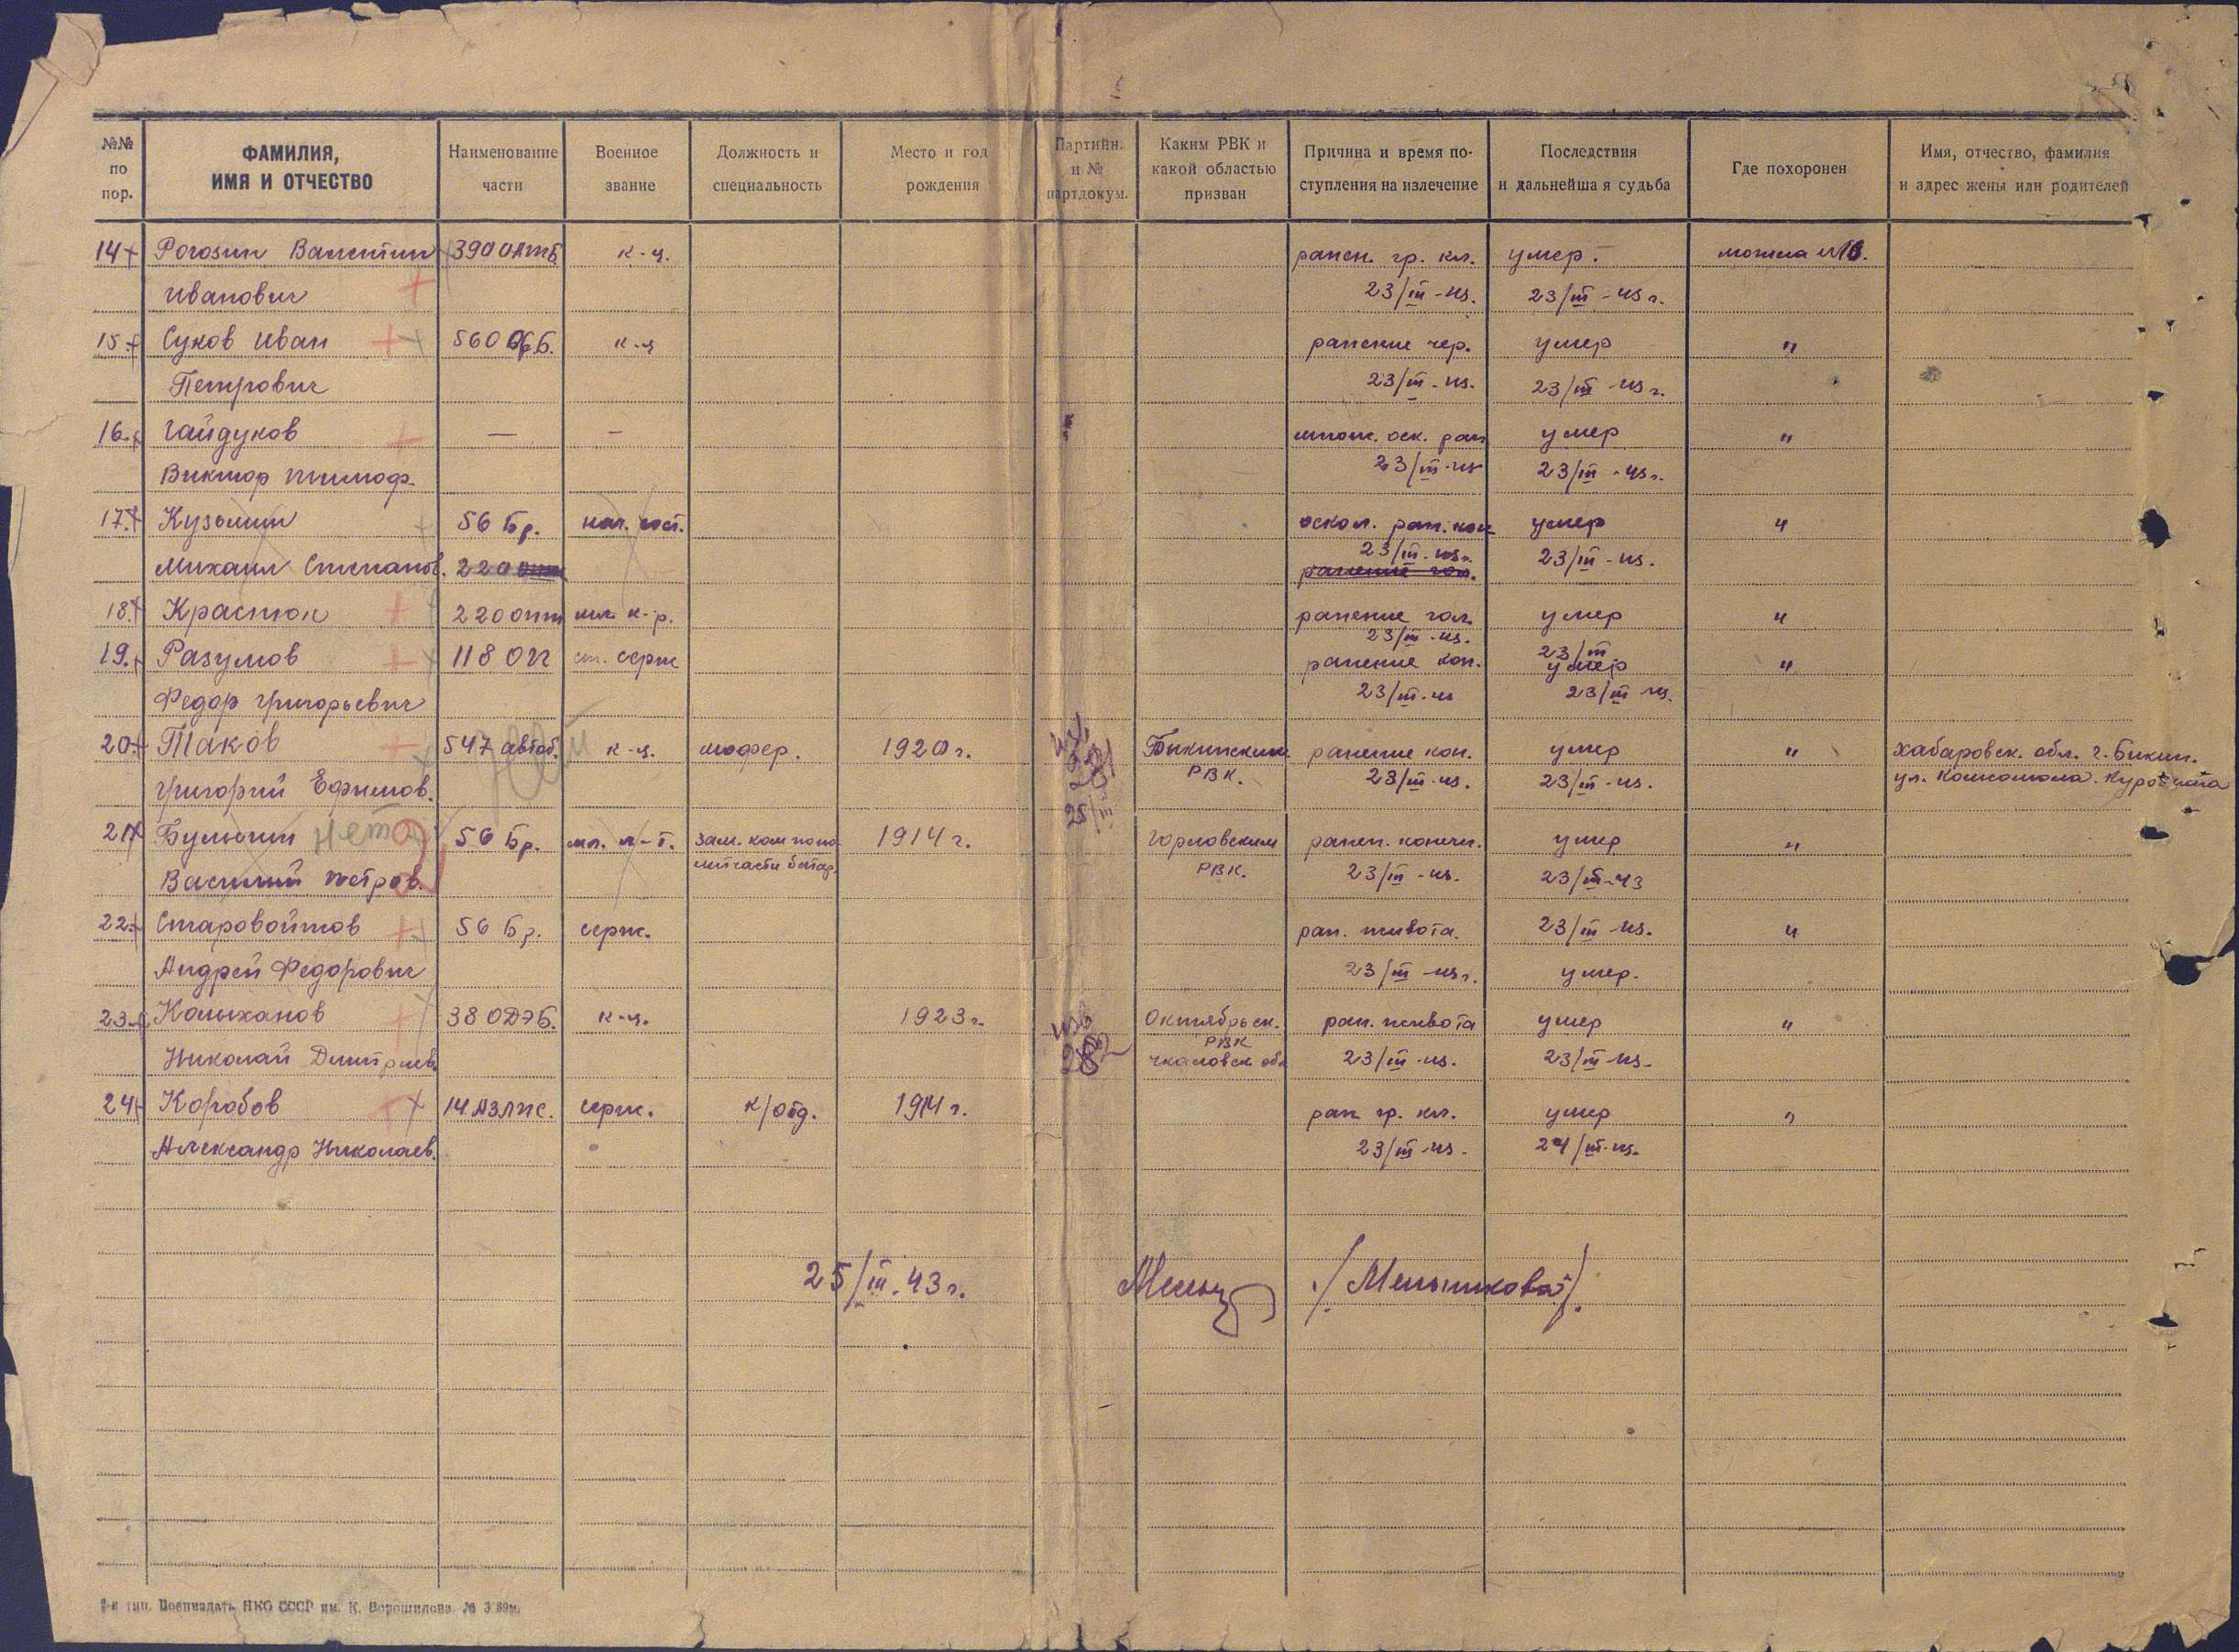 №№ по пор.
ФАМИЛИЯ, ИМЯ И ОТЧЕСТВО
Наименование части
Военное звание
Должность и специальность
Место и год рождения
Партийн. и № партдокум.
Каким РВК и какой областью призван
Причина и время поступления на излечение
Последствия и дальнейшая судьба
Где похоронен
Имя, отчество, фамилия и адрес жены или родителей
14 Рогозин Валентин 390 к-ц. ранен. гр. кл. умер. могила №10.
Иванович 23/III-43. 23/III-43 г.
15. Суков Иван 560 к-ц ранение чер. умер "
Петрович 23/III-43. 23/III-43 г.
16. Гайдуков — — множ. оск. ран умер "
Виктор Тимоф. 23/III-43 23/III-43 г.
17. Кузьмин 56 Бр. нач. сост. оскол. ран. кон умер "
Михаил Степанов. 220 23/III-43 г. 23/III-43.
ранение гол.
18. Краснюк 220 отп мл. к-р. ранение гол. умер "
23/III-43. 23/III
19. Разумов 118 ст. серж ранение кон. умер "
Федор Григорьевич 23/III-43 23/III-43.
20. Таков 547 автоб. к-ц. шофер. 1920 г. Бикинским ранение кон. умер " Хабаровск. обл. г. Бикин.
Григорий Ефимов. РВК. 23/III-43. 23/III-43. ул. Комсомола.
25/III
21. нет 56 Бр. мл. л-т. зам. ком по по- 1914 г. Горловским ранен. конечн. умер "
Василий Петров. литчасти батар. РВК. 23/III-43. 23/III-43
22. Старовойтов 56 Бр. серж. ран. живота. 23/III-43. "
Андрей Федорович 23/III-43 г. умер.
23. Колыханов 38 ОДЭБ. к-ц. 1923 г. Октябрьск. ран. живота умер "
РВК
Николай Дмитриев. Чкаловск обл 23/III-43. 23/III-43.
24 Коробов 14 АЗЛПС. серж. к/отд. 1914 г. ран гр. кл. умер "
Александр Николаев. 23/III-43. 24/III-43.
25/III.43 г. /Мельникова/.
НКО СССР им. К. Ворошилова.